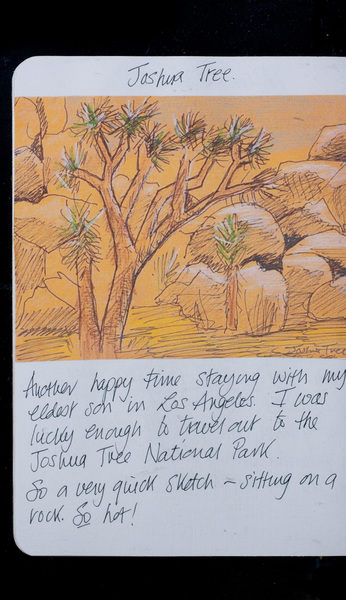 Joshua Tree.
Joshua Tree
Another happy time staying with my
eldest son in Los Angeles. I was
lucky enough to travel out to the
Joshua Tree National Park.
So a very quick sketch – sitting on a
rock. So hot!